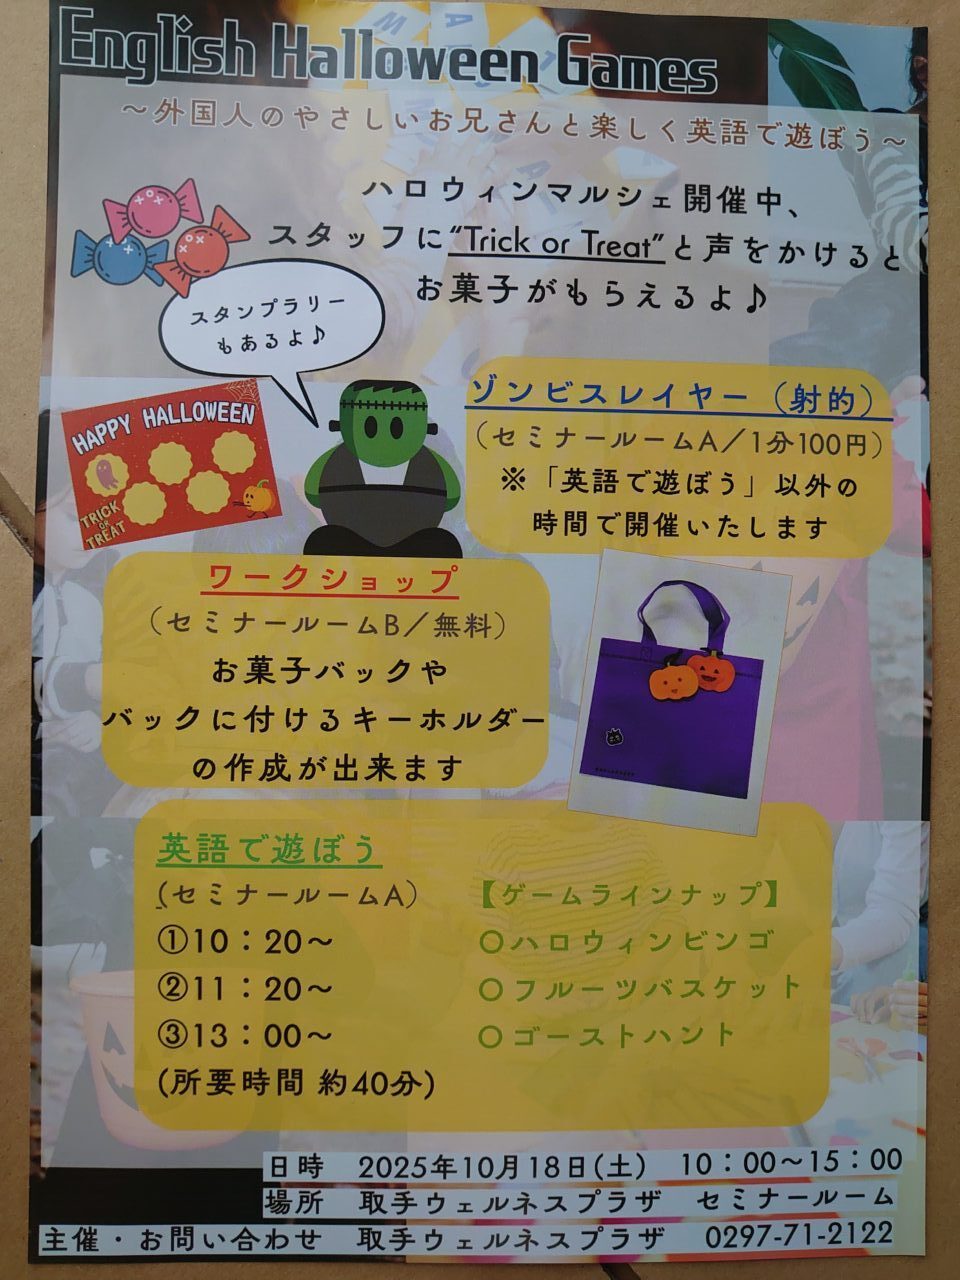 English Halloween Games
～外国人のやさしいお兄さんと楽しく英語で遊ぼう～
ハロウィンマルシェ開催中、
スタッフに“Trick or Treat”と声をかけると
お菓子がもらえるよ♪
スタンプラリー
もあるよ♪
HAPPY HALLOWEEN
TRICK
OR
TREAT
ゾンビスレイヤー（射的）
（セミナールームA／1分100円）
※「英語で遊ぼう」以外の
時間で開催いたします
ワークショップ
（セミナールームB／無料）
お菓子バックや
バックに付けるキーホルダー
の作成が出来ます
英語で遊ぼう
(セミナールームA）
①10：20～
②11：20～
③13：00～
(所要時間 約40分)
【ゲームラインナップ】
〇ハロウィンビンゴ
〇フルーツバスケット
〇ゴーストハント
日時 2025年10月18日(土) 10：00～15：00
場所 取手ウェルネスプラザ セミナールーム
主催・お問い合わせ 取手ウェルネスプラザ 0297-71-2122